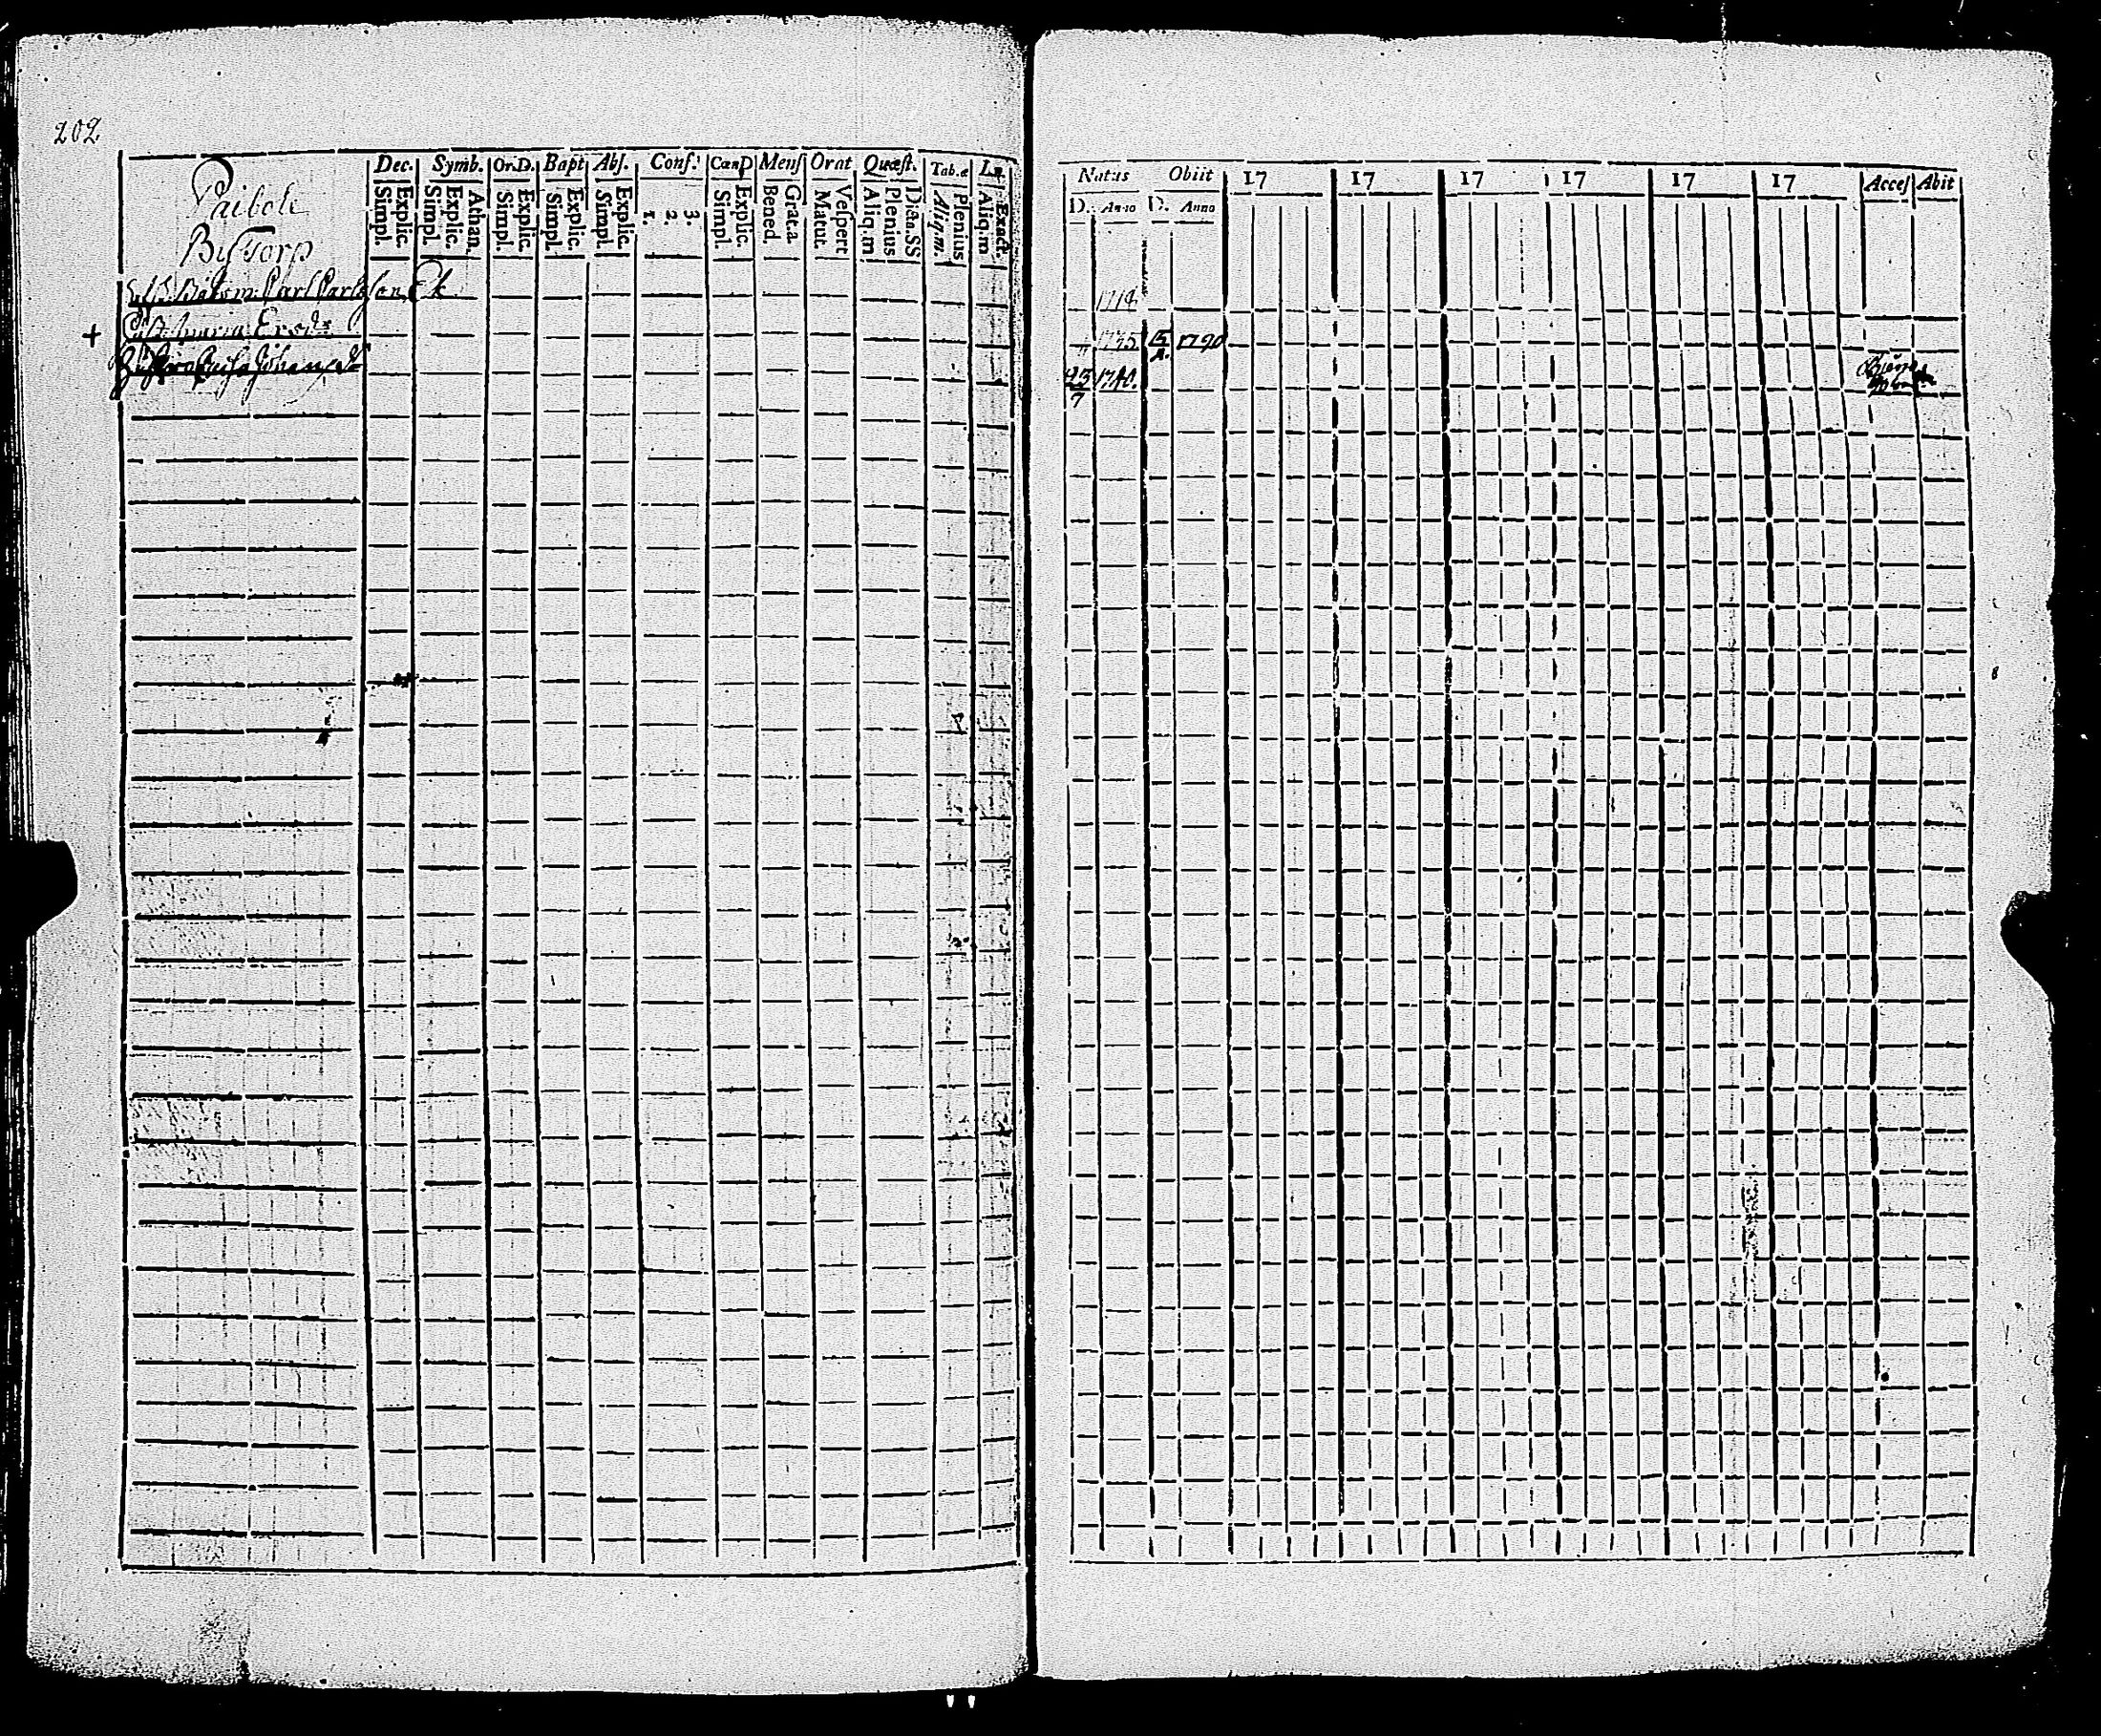 202
Vaibole
Bystorp
Dec. Symb. Or.D. Bapt Abs. Conf. CœnD Mens Orat Quæst. Tab.œ
Simpl. Explic. Simpl Explic. Athan. Simpl. Explic. Simpl. Explic. Simpl. Explic. 1. 2. 3. Simpl. Explic. Bened. Grat.a Matut. Vespert Aliq.m Plenius Dicta.SS Aliq.m. Plenius Aliq.m Exact.
Båtsm. Carl Carlsson Ek
+ Maria Ersdr
Natus Obiit 17 17 17 17 17 17 Acces Abit
D. Anno D. Anno
1714
1735 1790
25/7 1740.